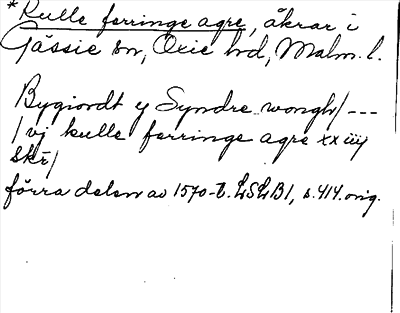 *Kulle ferringe agre, åkrar i
Gässie sn, Oxie hd, Malm. l.
Bygiordt y Syndre wongh/ ---
/ vj kulle ferringe agre xx iiij
skr/
förra delen av 1570-t. LSLB1, s. 414. orig.